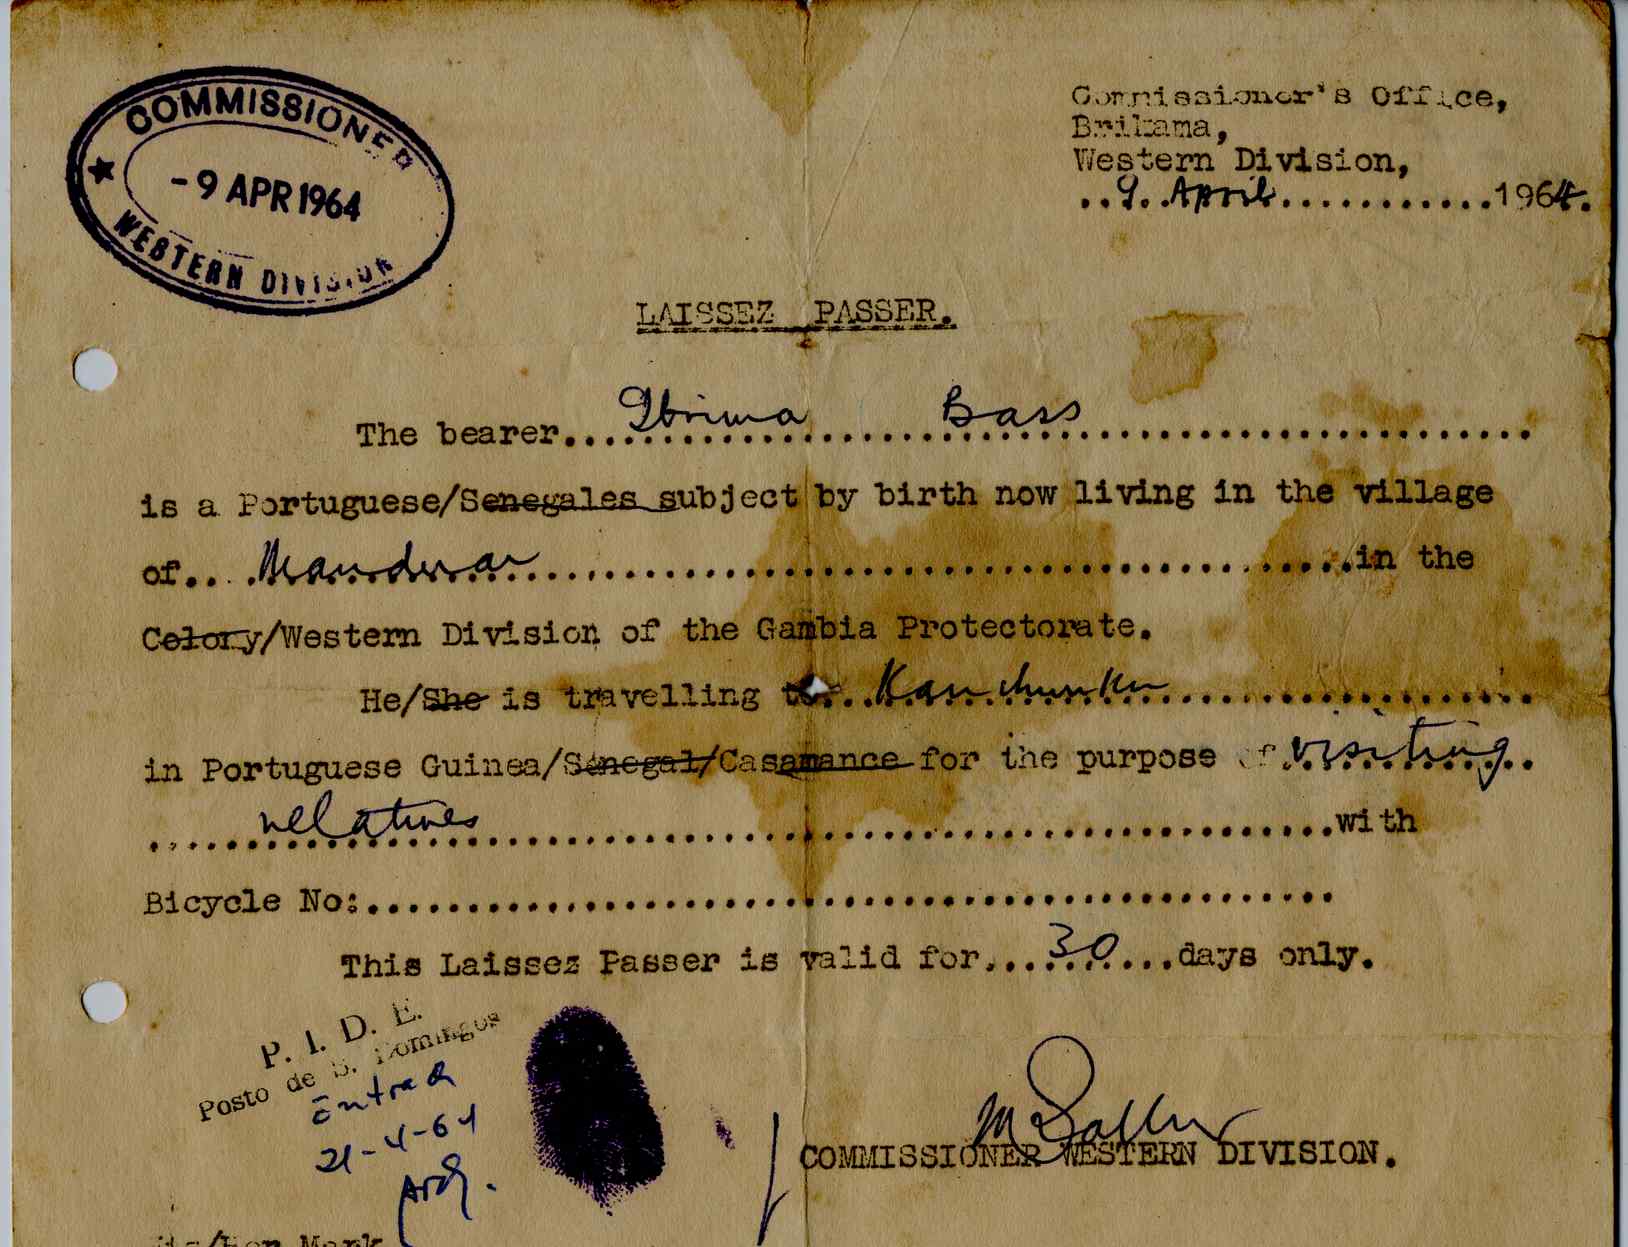 COMMISSIONER
- 9 APR 1964
WESTERN DIVISION
Commissioner's Office,
Brikama,
Western Division,
..9. April...........1964.
LAISSEZ PASSER.
The bearer...Ibrima Bass...
is a Portuguese/Senegales subject by birth now living in the village
of...Mandwar...in the
Colony/Western Division of the Gambia Protectorate.
He/She is travelling to...Kanchunku...
in Portuguese Guinea/Senegal/Casamance for the purpose of visiting..
relatives...with
Bicycle No:...
This Laissez Passer is valid for...30...days only.
P. I. D. E.
Posto de S. Domingos
Entrada
21-4-64
COMMISSIONER WESTERN DIVISION.
His/Her Mark